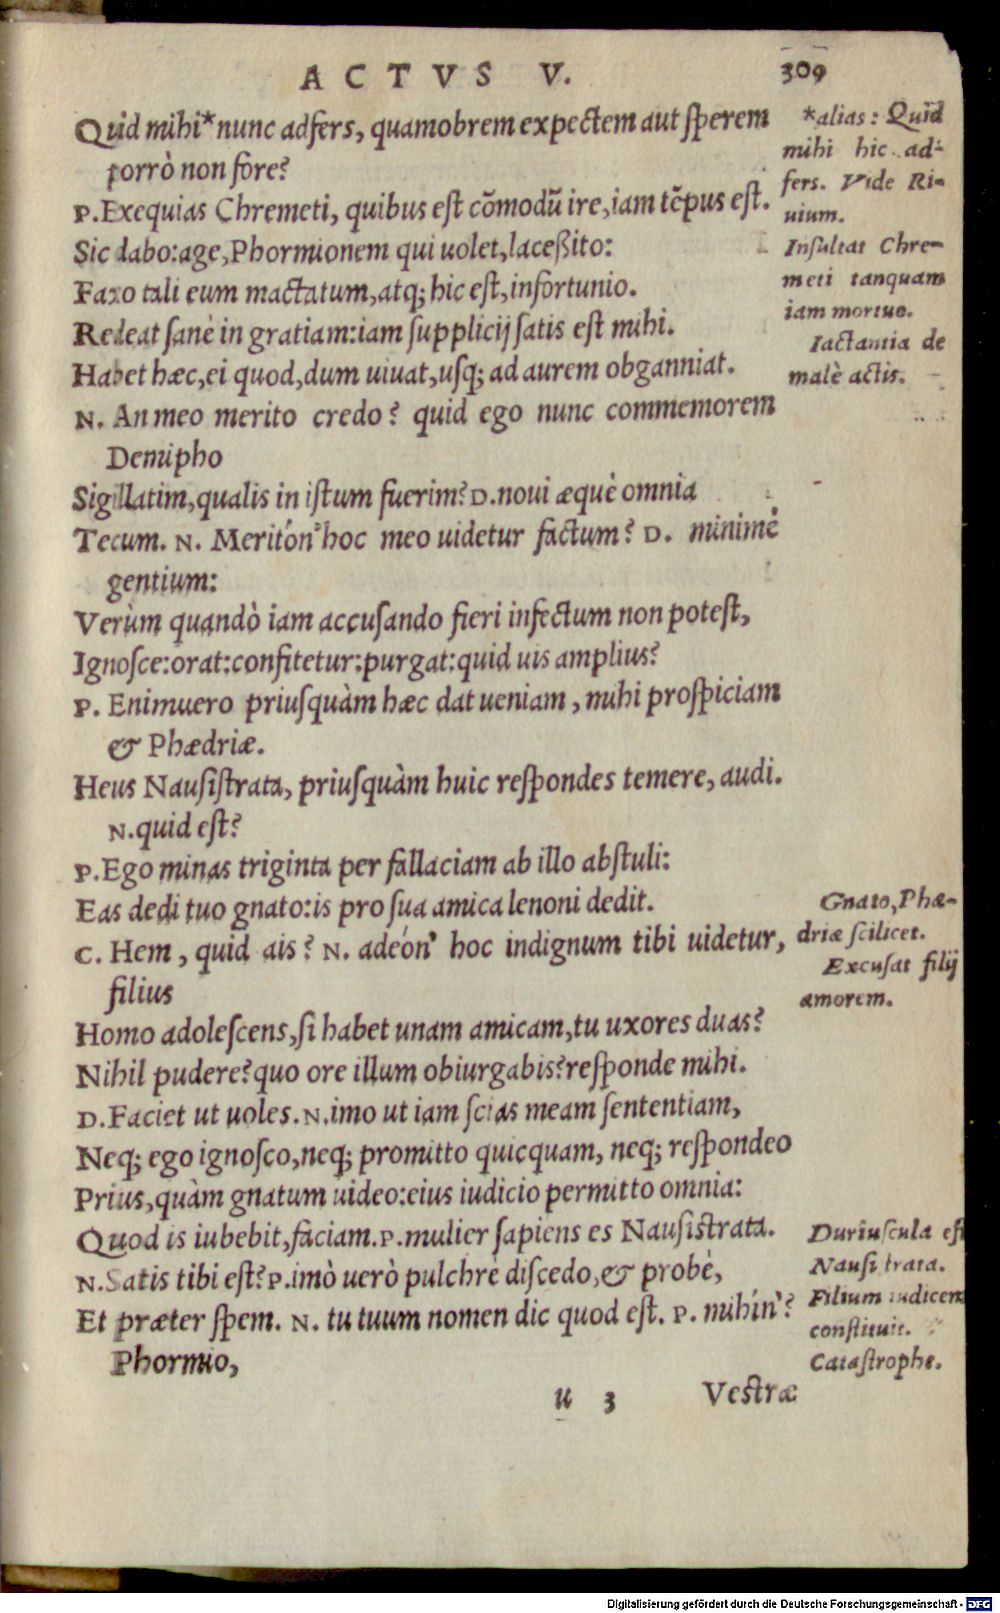 ACTVS V.
309
Quid mihi* nunc adfers, quamobrem expectem aut ſperem
porrò non fore?
P. Exequias Chremeti, quibus eſt cõmodũ ire, iam tẽpus eſt.
Sic dabo: age, Phormionem qui uolet, laceßito:
Faxo tali eum mactatum, atq; hic eſt, infortunio.
Redeat ſanè in gratiam: iam ſupplicij ſatis eſt mihi.
Habet hæc, ei quod, dum uiuat, uſq; ad aurem obganniat.
N. An meo merito credo? quid ego nunc commemorem
Demipho
Sigillatim, qualis in iſtum fuerim? D. noui æquè omnia
Tecum. N. Meritón' hoc meo uidetur factum? D. minimè
gentium:
Verùm quandò iam accuſando fieri infectum non poteſt,
Ignoſce: orat: confitetur: purgat: quid uis amplius?
P. Enimuero priuſquàm hæc dat ueniam, mihi proſpiciam
& Phædriæ.
Heus Nauſiſtrata, priuſquàm huic reſpondes temere, audi.
N. quid eſt?
P. Ego minas triginta per fallaciam ab illo abſtuli:
Eas dedi tuo gnato: is pro ſua amica lenoni dedit.
C. Hem, quid ais? N. adeón' hoc indignum tibi uidetur,
filius
Homo adoleſcens, ſi habet unam amicam, tu uxores duas?
Nihil pudere? quo ore illum obiurgabis? reſponde mihi.
D. Faciet ut uoles. N. imo ut iam ſcias meam ſententiam,
Neq; ego ignoſco, neq; promitto quicquam, neq; reſpondeo
Prius, quàm gnatum uideo: eius iudicio permitto omnia:
Quod is iubebit, faciam. P. mulier ſapiens es Nauſiſtrata.
N. Satis tibi eſt? P. imò uerò pulchrè diſcedo, & probè,
Et præter ſpem. N. tu tuum nomen dic quod eſt. P. mihín'?
Phormio,
u 3
Vestræ
*alias: Quid
mihi hic ad-
fers. Vide Ri-
uium.
Inſultat Chre-
meti tanquam
iam mortuo.
Iactantia de
malè actis.
Gnato, Phæ-
driæ ſcilicet.
Excuſat filij
amorem.
Duriuſcula eſt
Nauſiſtrata.
Filium iudicem
conſtituit.
Cataſtrophe.
Digitalisierung gefördert durch die Deutsche Forschungsgemeinschaft - DFG